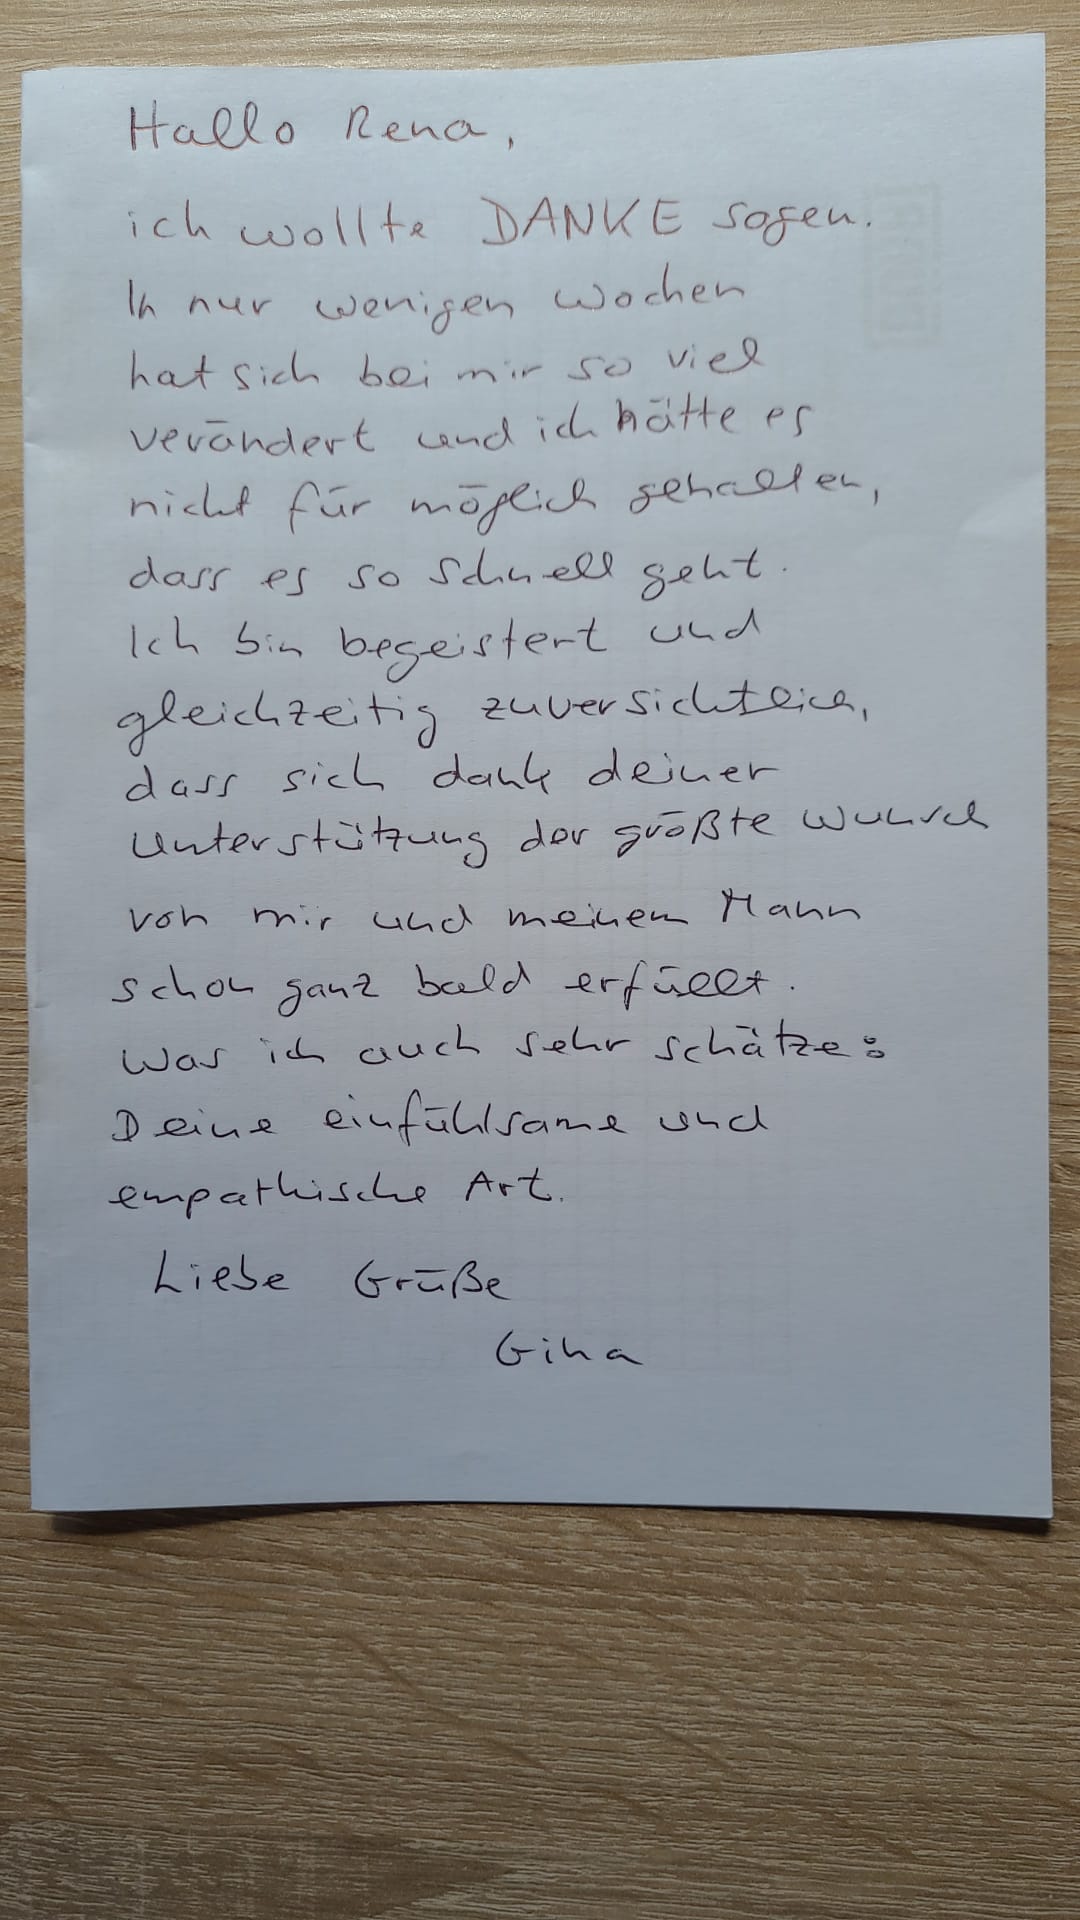 Hallo Rena,
ich wollte DANKE sagen.
In nur wenigen Wochen
hat sich bei mir so viel
verändert und ich hätte es
nicht für möglich gehalten,
dass es so schnell geht.
Ich bin begeistert und
gleichzeitig zuversichtlich,
dass sich dank deiner
Unterstützung der größte Wunsch
von mir und meinem Mann
schon ganz bald erfüllt.
Was ich auch sehr schätze:
Deine einfühlsame und
empathische Art.
Liebe Grüße
Gina